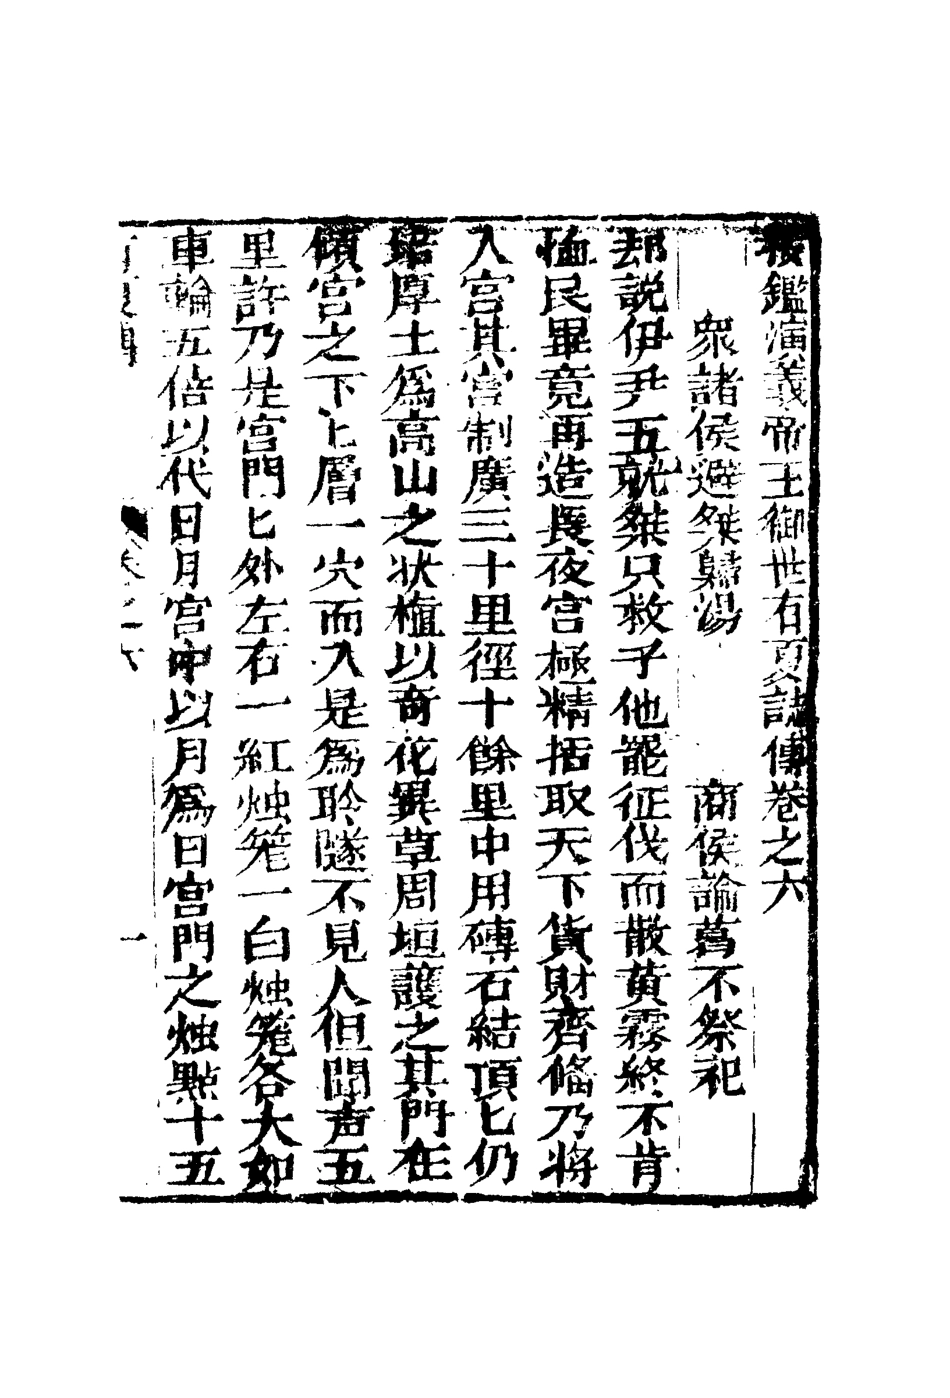 按鑑演義帝王御世有夏誌傳卷之六
衆諸侯避桀歸湯　商侯論葛不祭祀
却説伊尹五就桀只救子他罷征伐而散黄霧終不肯
恤民畢竟再造長夜宫極精括取天下貨財齊偹乃将
入宫其宫制廣三十里徑十餘里中用磚石結頂匕仍
培厚土爲高山之状植以奇花異草周垣護之其門在
傾宫之下匕層一穴而入是爲聆隧不見人但聞声五
里許乃是宫門匕外左右一紅烛笼一白烛笼各大如
車輪五倍以代日月宫中以月爲日宫門之烛點十五
有夏傳　卷之六　一